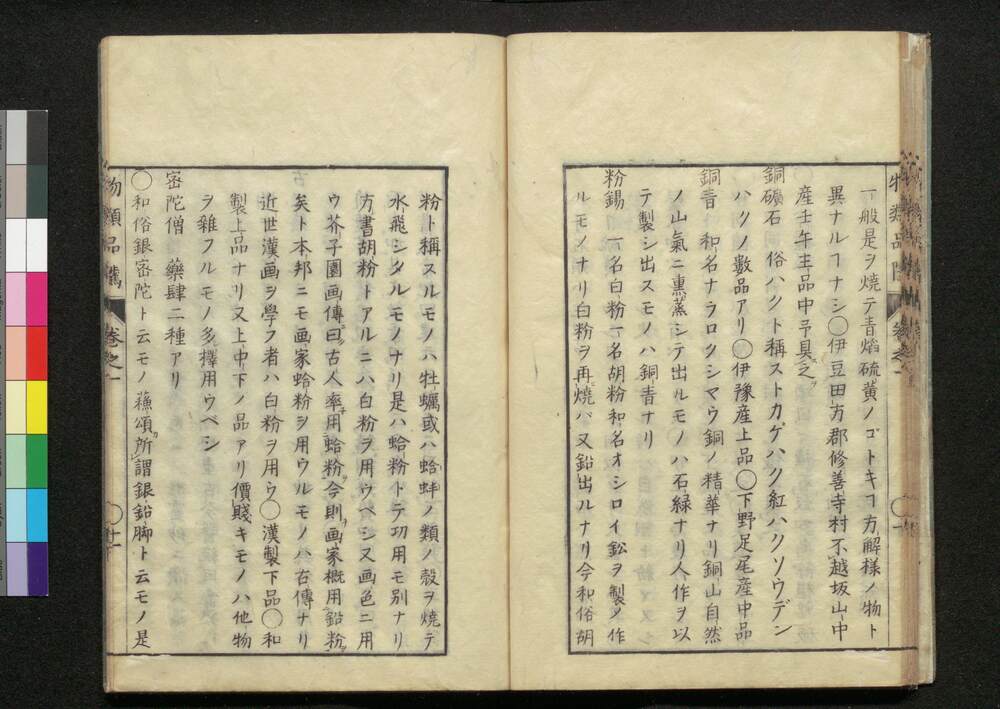 一般是ヲ燒テ青焰硫黄ノゴトキヿ方解様ノ物ト
異ナルヿナシ〇伊豆田方郡修善寺村不越坂山中
産壬午主品中予具之
銅礦石 同俗ハクト稱ストカゲハク紅ハクソウデン
ハクノ數品アリ〇伊豫産上品〇下野足尾産中品
銅青 和名ナラロクシマウ銅ノ精華ナリ銅山自然
ノ山氣ニ熏蒸シテ出ルモノハ石緑ナリ人作ヲ以
テ製シ出スモノハ銅青ナリ
粉錫 一名白粉一名胡粉和名オシロイ鈆ヲ製メ作
ルモノナリ白粉ヲ再燒バ又鉛出ルナリ今和俗胡
物類品隲 卷之一
粉ト稱スルモノハ牡蠣或ハ蛤蚌ノ類ノ殻ヲ燒テ
水飛シタルモノナリ是ハ蛤粉トテ功用モ別ナリ
方書胡粉トアルニハ白粉ヲ用ウベシ又画色ニ用
ウ芥子園画傳曰古人率用蛤粉今則画家概用鉛粉
矣ト本邦ニモ画家蛤粉ヲ用ウルモノハ古傳ナリ
近世漢画ヲ學フ者ハ白粉ヲ用ウ〇漢製下品〇和
製上品ナリ又上中下ノ品アリ價賤キモノハ他物
ヲ雜フルモノ多擇用ウベシ
密陀僧 藥肆二種アリ
〇和俗銀密陀ト云モノ蘓頌所謂銀鉛脚ト云モノ是
物類品隲 卷之一 〇十一